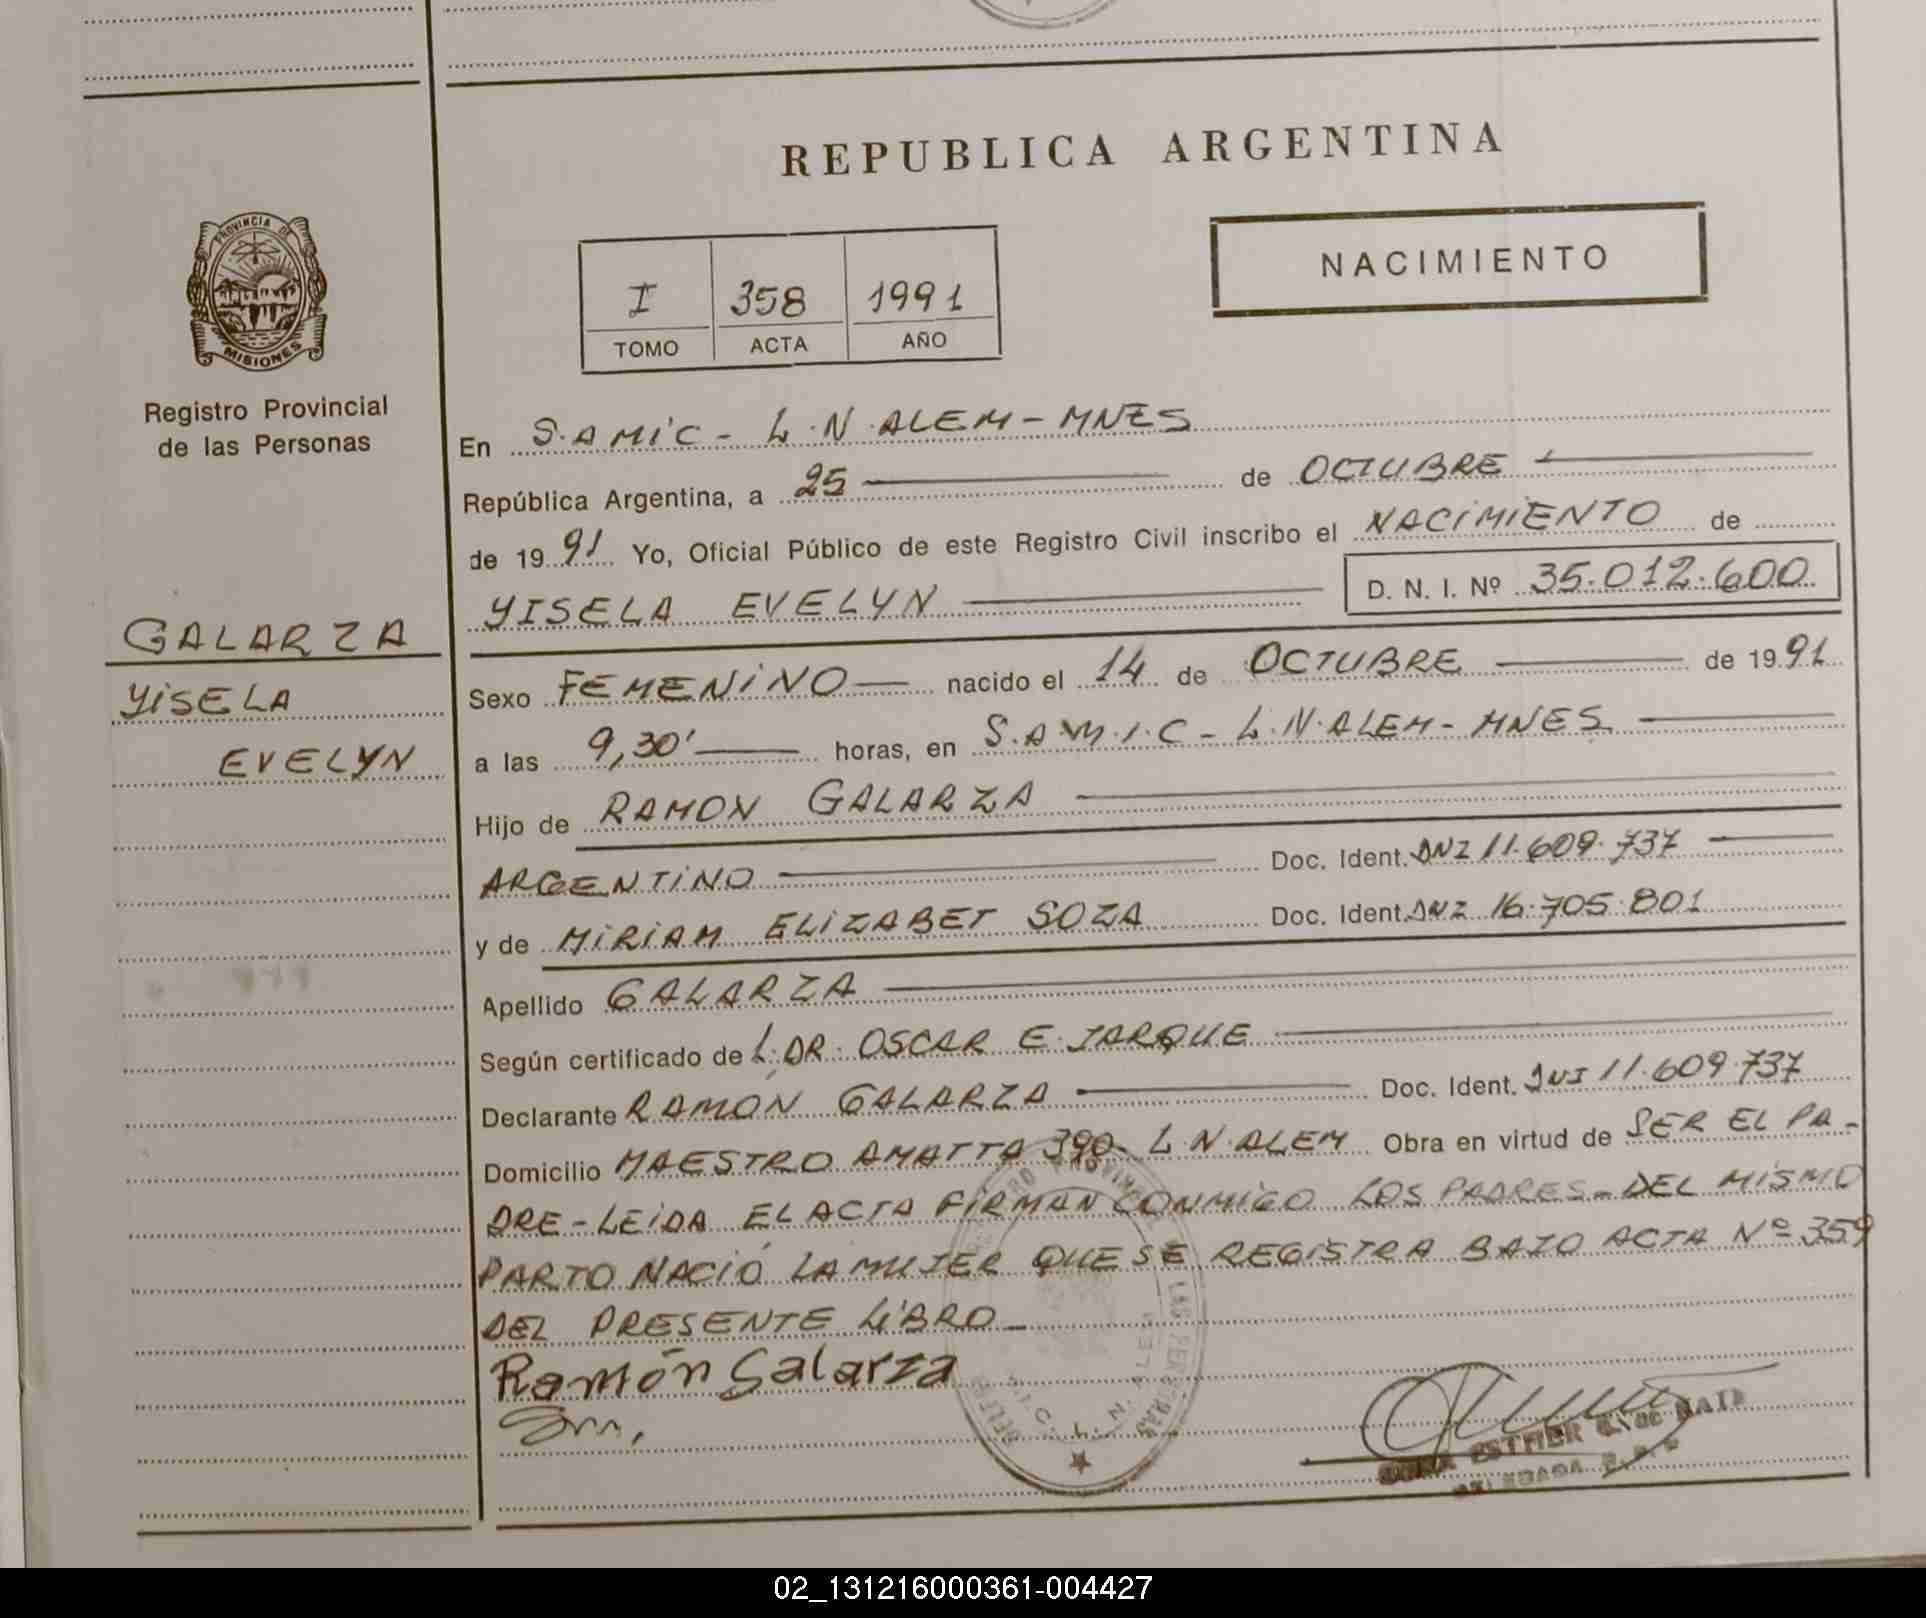 REPUBLICA ARGENTINA
NACIMIENTO
I 358 1991
TOMO ACTA AÑO
PROVINCIA DE
MISIONES
Registro Provincial
de las Personas
GALARZA
YISELA
EVELYN
En S.AMIC - L.N.ALEM - MNES
República Argentina, a 25 de OCTUBRE
de 1991 Yo, Oficial Público de este Registro Civil inscribo el NACIMIENTO de
YISELA EVELYN D. N. I. Nº 35.012.600
Sexo FEMENINO nacido el 14 de OCTUBRE de 1991
a las 9,30' horas, en S.A.M.I.C - L.N.ALEM - MNES
Hijo de RAMON GALARZA
ARGENTINO Doc. Ident. DNI 11.609.737
y de MIRIAM ELIZABET SOZA Doc. Ident. DNI 16.705.801
Apellido GALARZA
Según certificado de L.DR. OSCAR E. JARQUE
Declarante RAMÓN GALARZA Doc. Ident. DNI 11.609.737
Domicilio MAESTRO AMATTA 390 - L N ALEM Obra en virtud de SER EL PA-
DRE - LEIDA EL ACTA FIRMAN CONMIGO LOS PADRES - DEL MISMO
PARTO NACIÓ LA MUJER QUE SE REGISTRA BAJO ACTA Nº 359
DEL PRESENTE LIBRO -
Ramón Galarza
ESTHER
02_131216000361-004427